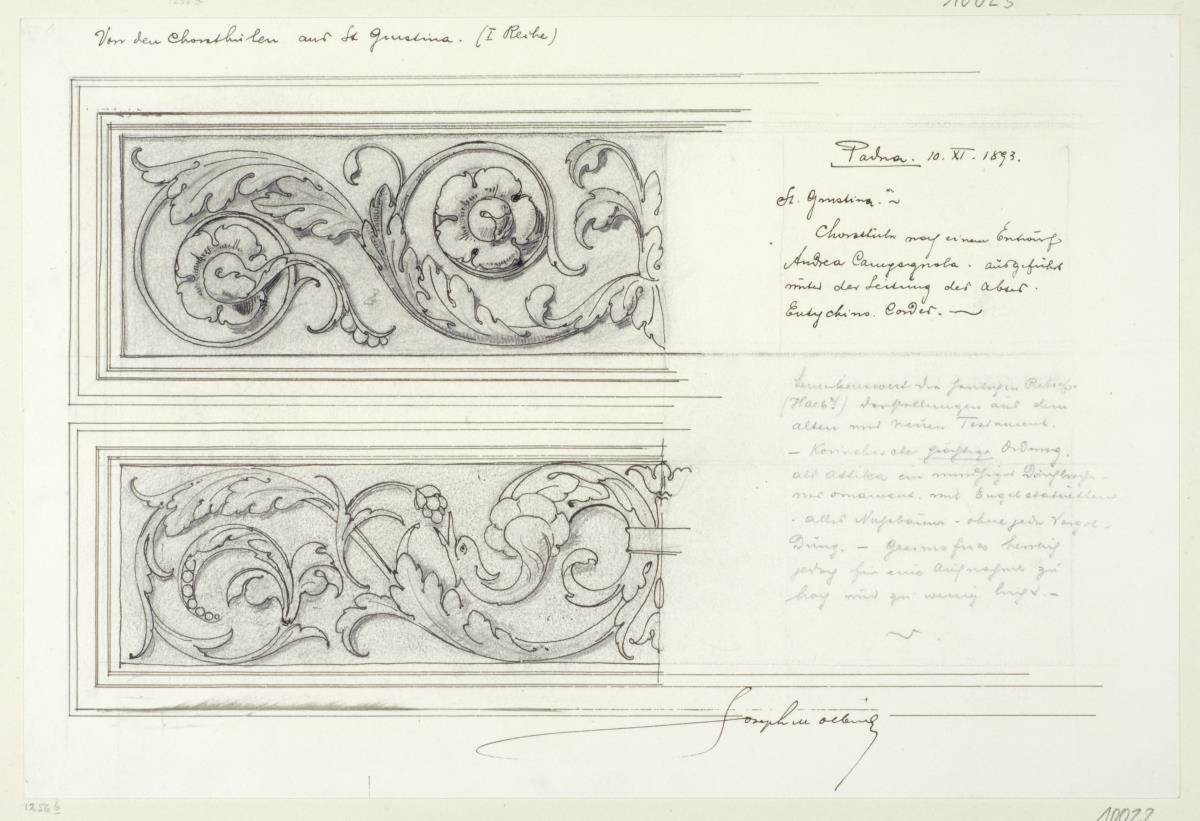 10023
Von den Chorstühlen aus St Giustina. (I Reihe)
Padua. 10. XI. 1893.
St. Giustina.
Chorstühle nach einem Entwurf
Andrea Campagnola. ausgeführt
unter der Leitung des Abtes.
Eutychius. Cordes.
Bemerkenswert die
(Halb) Darstellungen aus dem
alten und neuen Testament.
– Korinthische Ordnung.
als Attika ein
ornament. mit Engelstatuetten
alles Nussbaum - ohne jede Vergol-
dung. – Gesimsfries herrlich
jedoch für eine Aufnahme zu
hoch und zu wenig Licht. –
Joseph M Olbrich
1256 b
10022